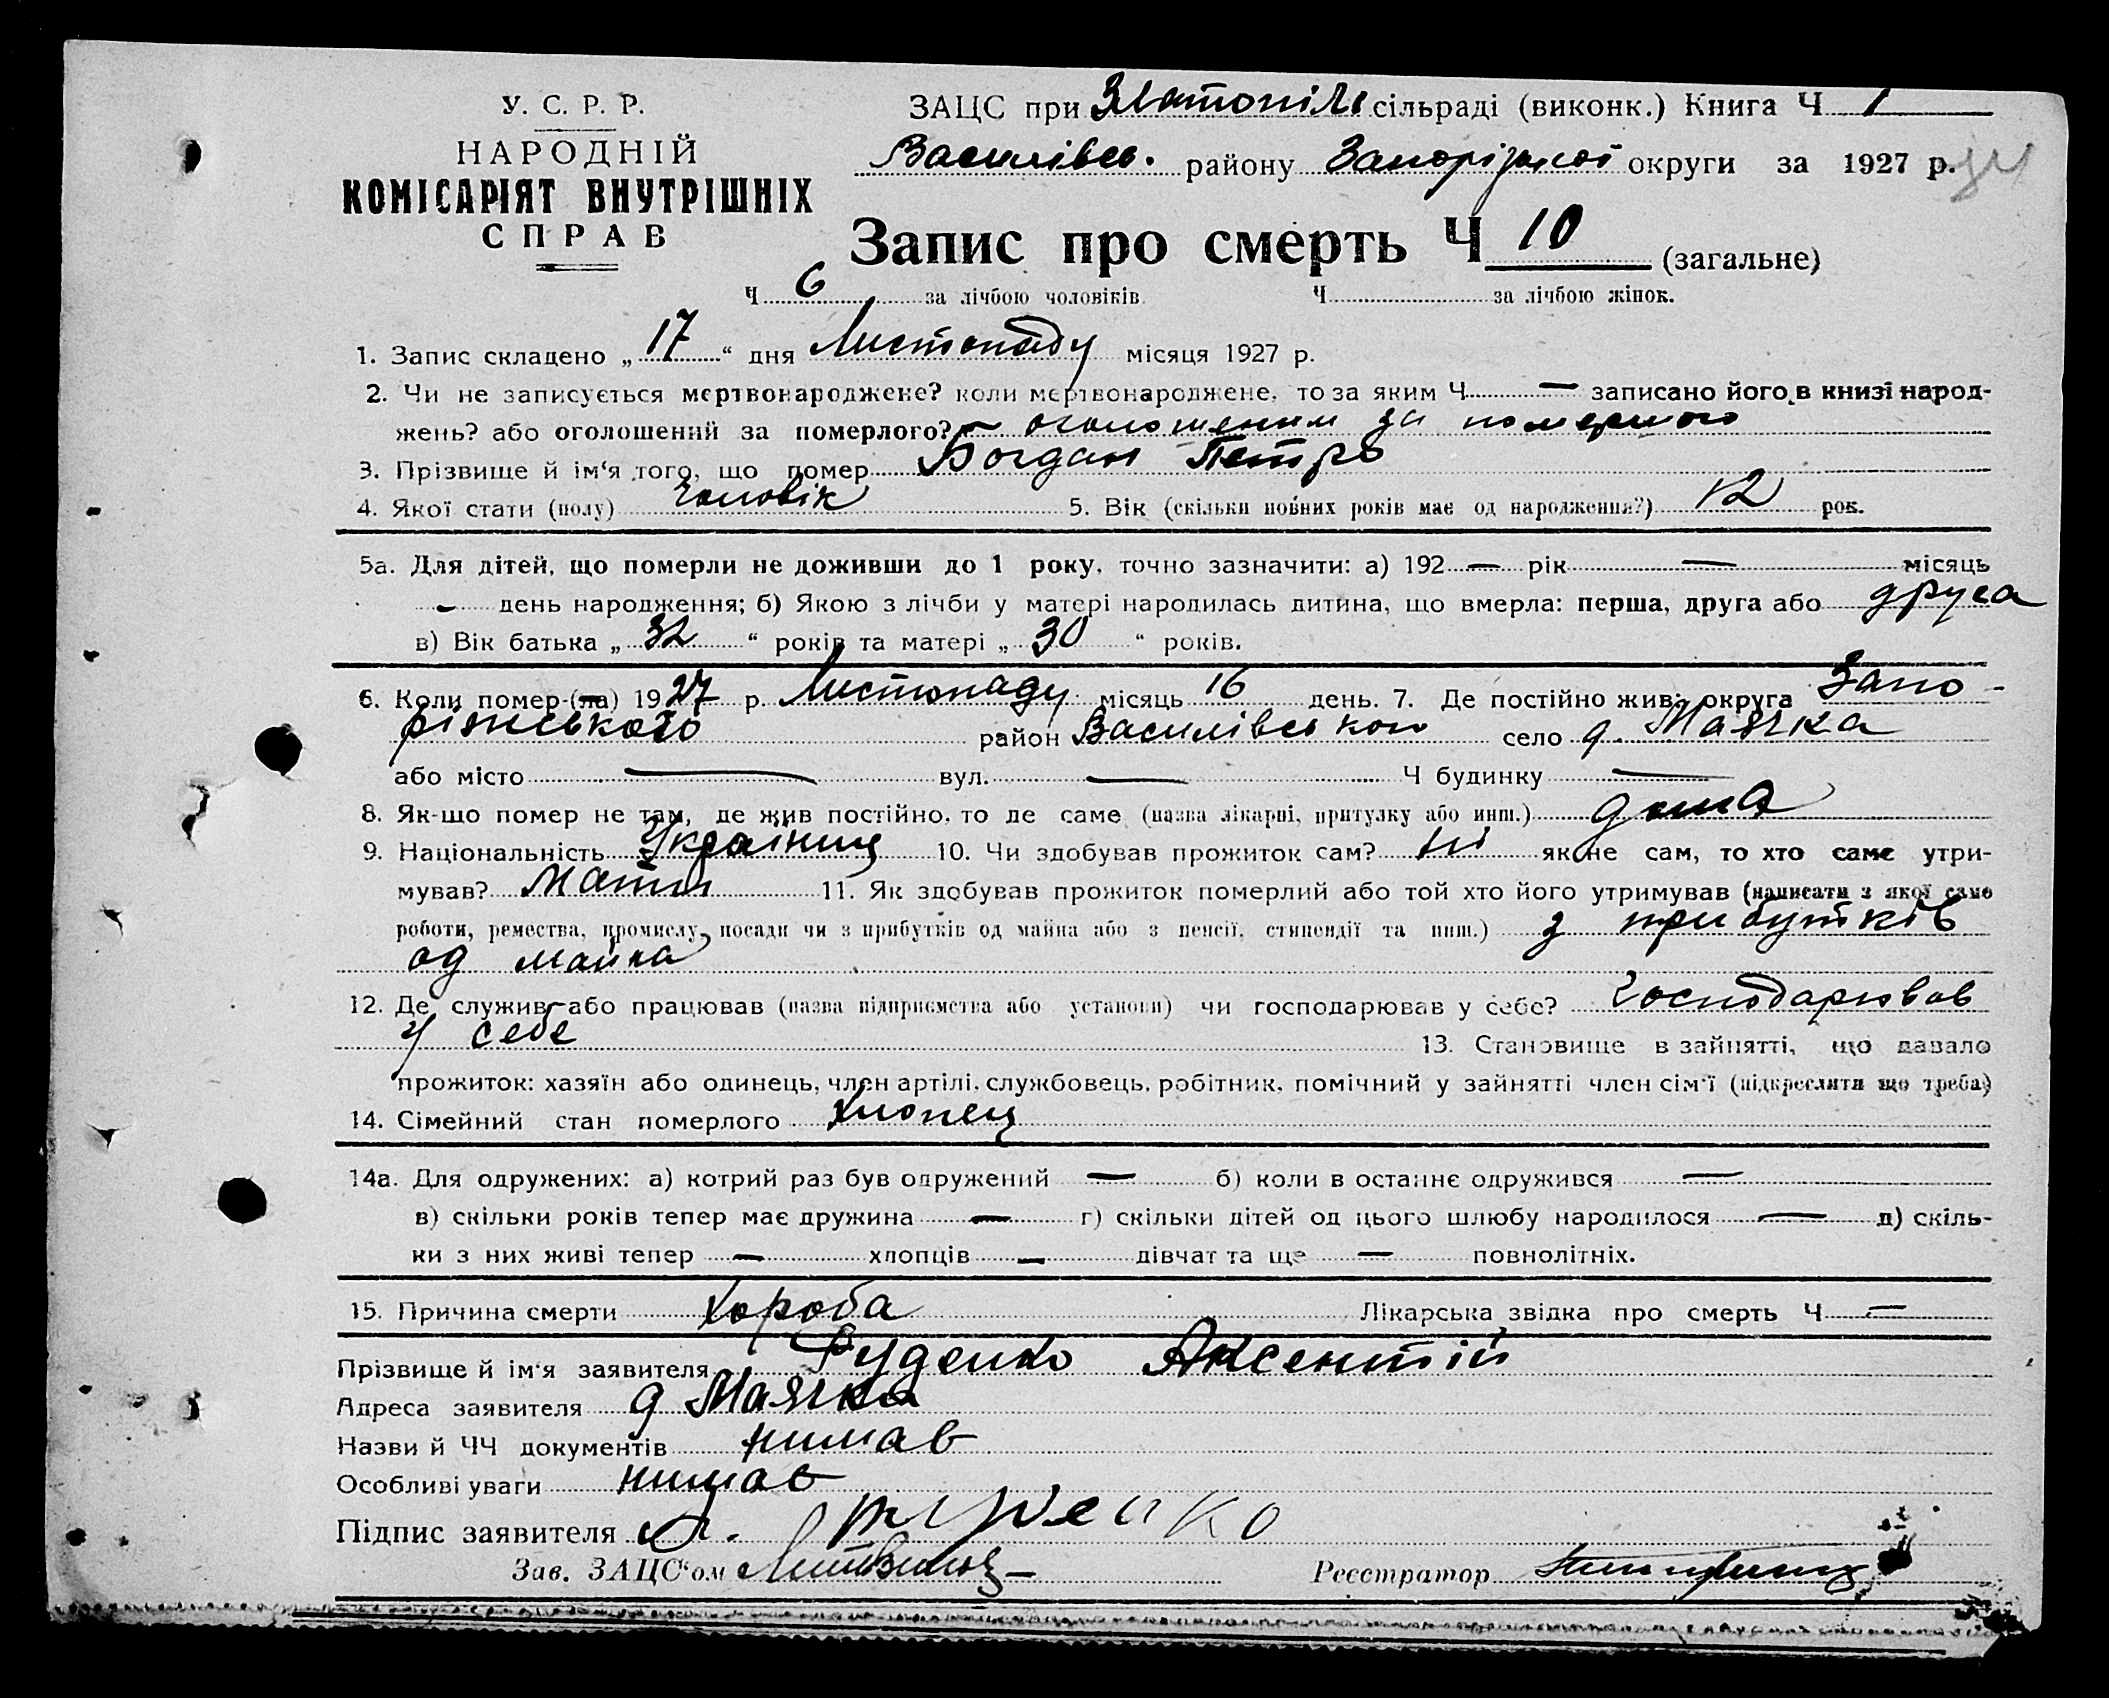 У. С. Р. Р.
НАРОДНІЙ
КОМІСАРІЯТ ВНУТРІШНІХ
СПРАВ
ЗАЦС при Златопіль сільраді (виконк.) Книга Ч 1
Василівсь. району Запорізької округи за 1927 р.
Запис про смерть Ч 10 (загальне)
Ч 6 за лічбою чоловіків. Ч за лічбою жінок.
1. Запис складено „ 17 “ дня Листопаду місяця 1927 р.
2. Чи не записується мертвонароджене? коли мертвонароджене, то за яким Ч — записано його в книзі народ-
жень? або оголошений за померлого? оголошеним за померлого
3. Прізвище й ім‘я того, що помер Богдан Петро
4. Якої стати (полу) чоловік 5. Вік (скільки повних років має од народження?) 12 рок.
5а. Для дітей, що померли не доживши до 1 року, точно зазначити: а) 192 — рік — місяць
— день народження; б) Якою з лічби у матері народилась дитина, що вмерла: перша, друга або друга
в) Вік батька „ 32 “ років та матері „ 30 “ років.
6. Коли помер-(ла) 1927 р. Листопаду місяць 16 день. 7. Де постійно жив: округа Запо-
ріжського район Василівського село д. Маячка
або місто — вул. — Ч будинку —
8. Як-що помер не там, де жив постійно, то де саме (назва лікарні, притулку або инш.) дома
9. Національність Українец 10. Чи здобував прожиток сам? ні як не сам, то хто саме утри-
мував? Мати 11. Як здобував прожиток померлий або той хто його утримував (написати з якої саме
роботи, ремества, промислу, посади чи з прибутків од майна або з пенсії, стипендії та инш.) з прибутків
од майна
12. Де служив або працював (назва підприємства або установи) чи господарював у себе? Господарював
у себе 13. Становище в зайнятті, що давало
прожиток: хазяїн або одинець, член артілі, службовець, робітник, помічний у зайнятті член сім‘ї (підкреслити що треба)
14. Сімейний стан померлого Хлопец
14а. Для одружених: а) котрий раз був одружений — б) коли в останнє одружився —
в) скільки років тепер має дружина — г) скільки дітей од цього шлюбу народилося — д) скіль-
ки з них живі тепер — хлопців — дівчат та ще — повнолітніх.
15. Причина смерти Хороба Лікарська звідка про смерть Ч —
Прізвище й ім‘я заявителя Руденко Аксентій
Адреса заявителя д Маячка
Назви й ЧЧ документів нимає
Особливі уваги нимає
Підпис заявителя А. Руденко
Зав. ЗАЦС‘ом
Реєстратор